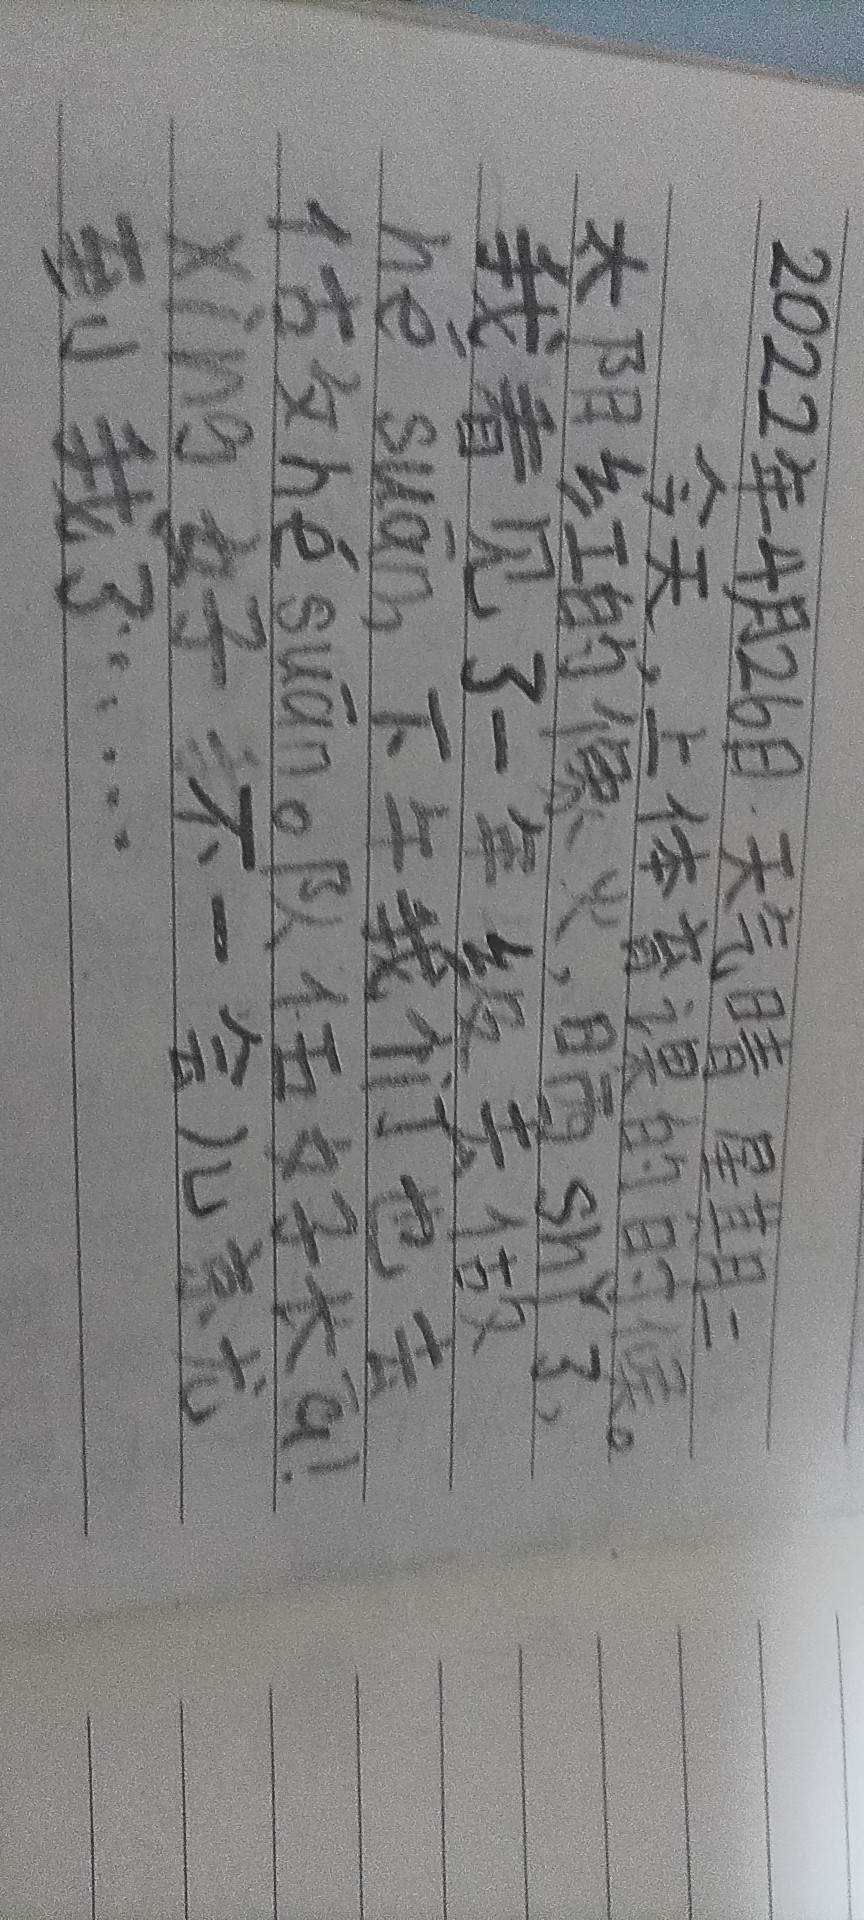 2022年4月26日 天气晴 星期二
今天,上体育课的时候。
太阳红的像火,阳雨shǐ了,
我看见了一年级去做
hé suān,下午我们也去
做hé suān。队伍好长ā!
xìng好不一会儿就
到我了……